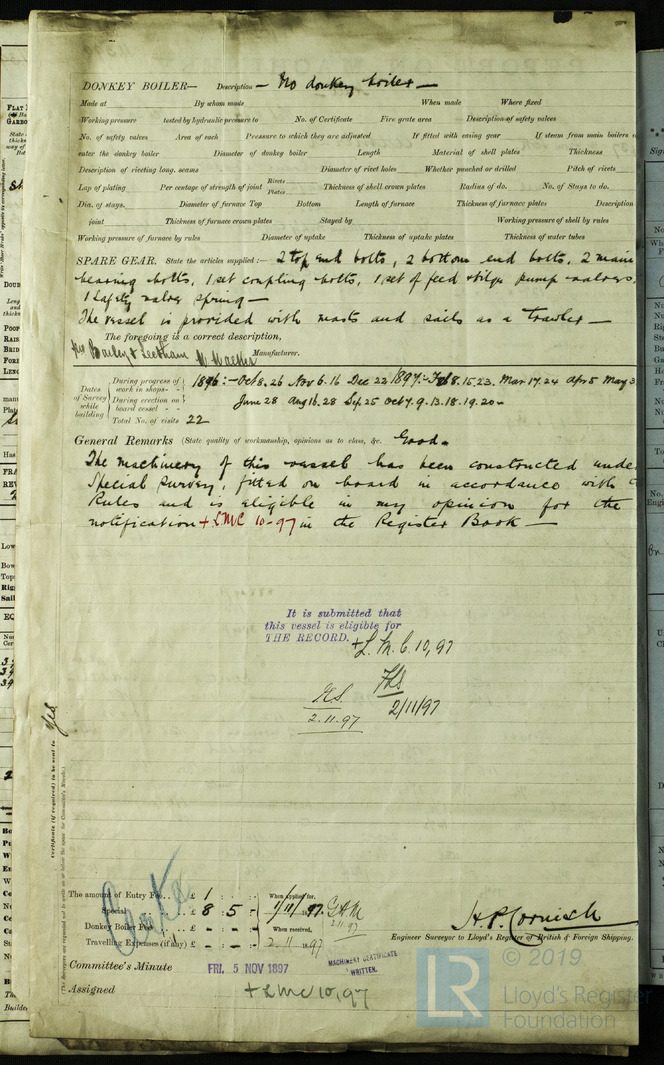 DONKEY BOILER— Description — No donkey boiler —
Made at By whom made When made Where fixed
Working pressure tested by hydraulic pressure to No. of Certificate Fire grate area Description of safety valves
No. of safety valves Area of each Pressure to which they are adjusted If fitted with easing gear If steam from main boilers
enter the donkey boiler Diameter of donkey boiler Length Material of shell plates Thickness
Description of riveting long. seams Diameter of rivet holes Whether punched or drilled Pitch of rivets
Lap of plating Per centage of strength of joint Rivets Plates Thickness of shell crown plates Radius of do. No. of Stays to do.
Dia. of stays. Diameter of furnace Top Bottom Length of furnace Thickness of furnace plates Description
joint Thickness of furnace crown plates Stayed by Working pressure of shell by rules
Working pressure of furnace by rules Diameter of uptake Thickness of uptake plates Thickness of water tubes
SPARE GEAR. State the articles supplied:— 2 top end bolts, 2 bottom end bolts, 2 main
bearing bolts, 1 set coupling bolts, 1 set of feed & bilge pump valves,
1 Safety valve spring —
The vessel is provided with masts and sails as a trawler —
The foregoing is a correct description,
Bailey & Leetham Manufacturer.
Dates of Survey while building
During progress of work in shops - - 1896:- Oct 8. 26 Nov 6. 16 Dec 22 1897:- Feb 8. 15. 23. Mar 17. 24 Apr 5 May 3
During erection on board vessel - - June 28 Aug 16. 28 Sep 25 Oct 7. 9. 13. 18. 19. 20 -
Total No. of visits 22
General Remarks (State quality of workmanship, opinions as to class, &c. Good.
The machinery of this vessel has been constructed unde
Special Survey, fitted on board in accordance with
Rules and is eligible in my opinion for the
notification + LMC 10-97 in the Register Book —
It is submitted that
this vessel is eligible for
THE RECORD. + L. M. C. 10, 97
2.11.97
2/11/97
Certificate (if required) to be sent to Yes
The amount of Entry Fee . . £ 1 : : When applied for,
Special . . £ 8 : 5 : - 1/11/97. 2.11.97
Donkey Boiler Fee . . £ - : - : - When received,
Travelling Expenses (if any) £ - : - : - 2.11.1897
H. P. Cornish
Engineer Surveyor to Lloyd's Register of British & Foreign Shipping.
Committee's Minute FRI. 5 NOV 1897
MACHINERY CERTIFICATE
WRITTEN.
Assigned + LMC 10,97
© 2019
LR
Lloyd's Register
Foundation